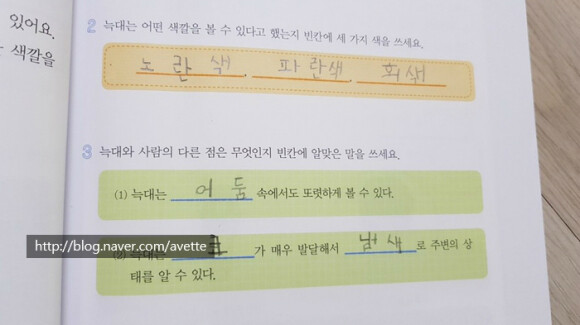 있어요.
색깔을
2 늑대는 어떤 색깔을 볼 수 있다고 했는지 빈칸에 세 가지 색을 쓰세요.
노란색, 파란색, 회색
3 늑대와 사람의 다른 점은 무엇인지 빈칸에 알맞은 말을 쓰세요.
(1) 늑대는 어둠 속에서도 또렷하게 볼 수 있다.
(2) 늑대는 코가 매우 발달해서 냄새로 주변의 상
태를 알 수 있다.
http://blog.naver.com/avette